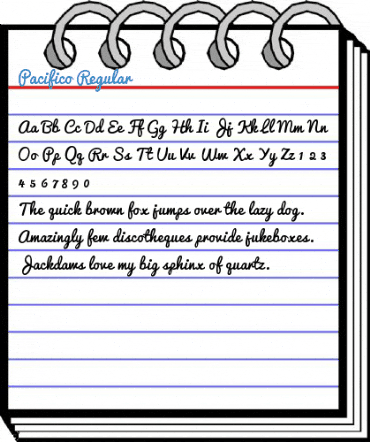 Pacifico Regular
Aa Bb Cc Dd Ee Ff Gg Hh Ii Jj Kk Ll Mm Nn
Oo Pp Qq Rr Ss Tt Uu Vv Ww Xx Yy Zz 1 2 3
4 5 6 7 8 9 0
The quick brown fox jumps over the lazy dog.
Amazingly few discotheques provide jukeboxes.
Jackdaws love my big sphinx of quartz.